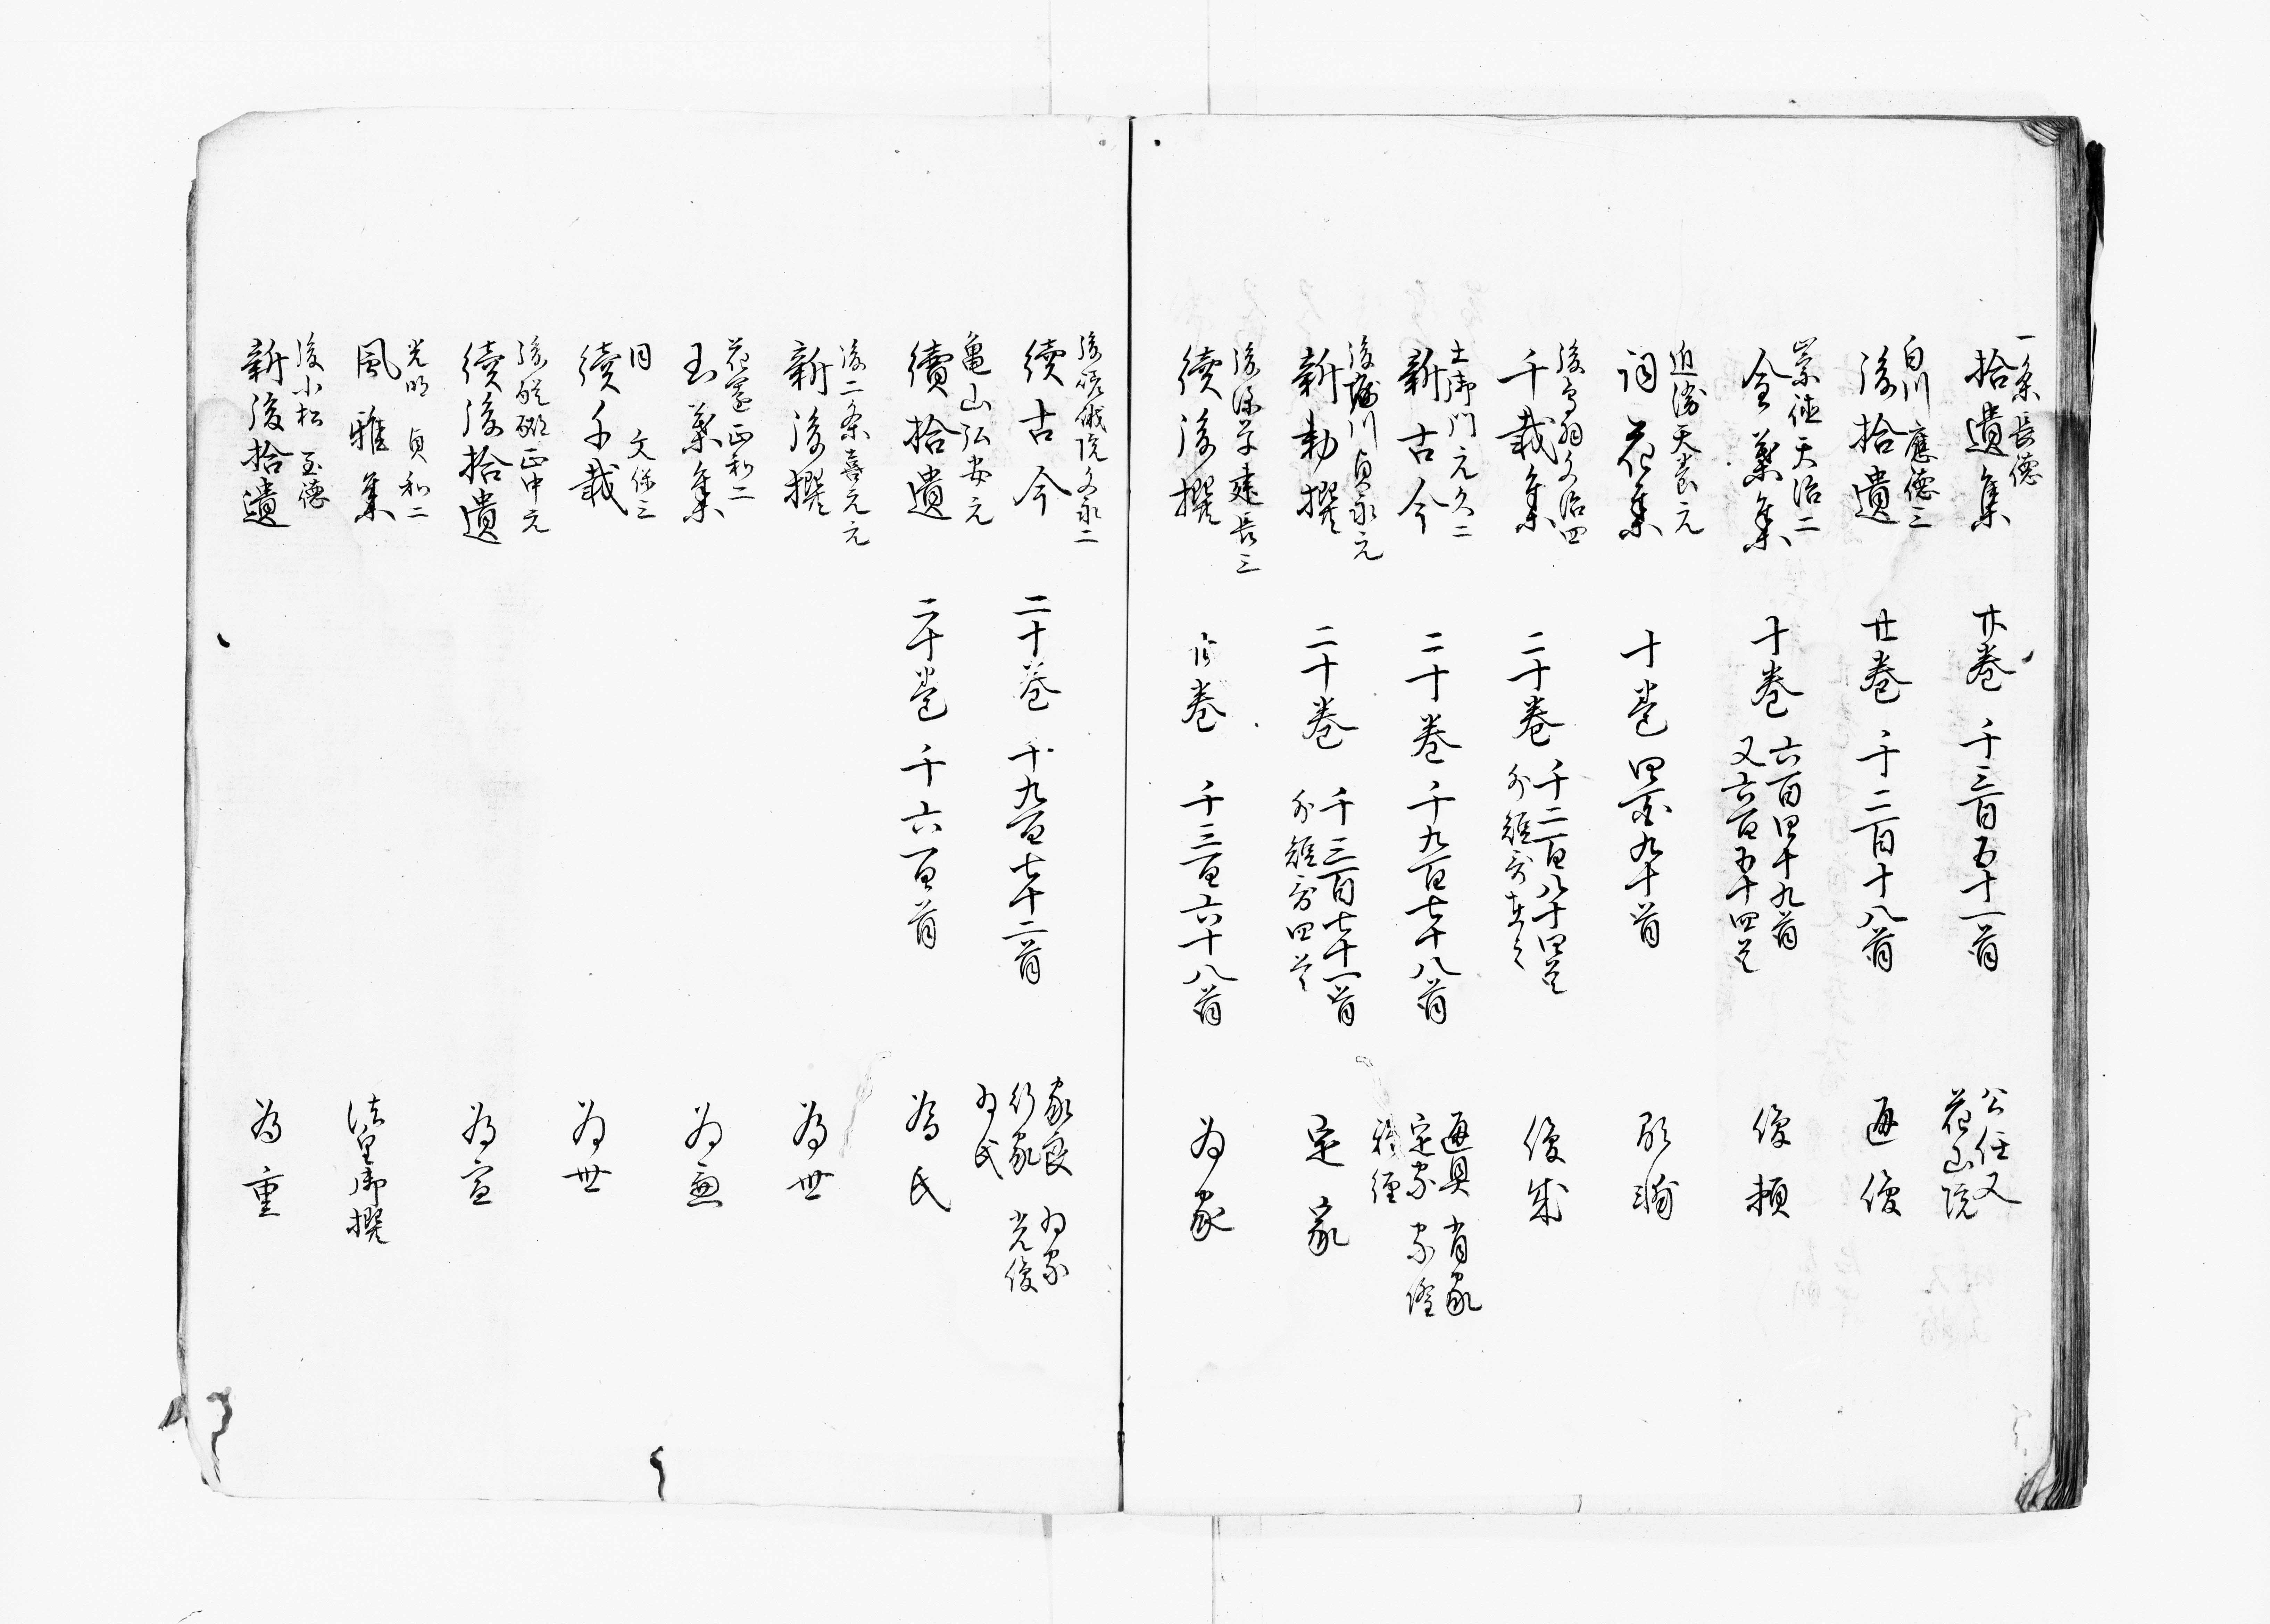 一条 長徳
拾遺集 廿巻 千三百五十一首 公任又 花山院
白川 應徳三
後拾遺 廿巻 千二百十八首 通俊
崇徳 天治二
金葉集 十巻 六百四十九首 又六百五十四首 俊頼
近衛 天養元
詞花集 十巻 四百九十首 顕輔
後鳥羽 文治四
千載集 二十巻 千二百八十四首 俊成
土御門 元久二
新古今 二十巻 千九百七十八首 通具 有家 定家 家隆 雅経
後堀川 貞永元
新勅撰 二十巻 千三百七十一首 外短哥四首 定家
後深草 建長三
續後撰 巻 千三百六十八首 為家
後嵯峨院 文永二
續古今 二十巻 千九百七十二首 家良 為家 行家 光俊 為氏
亀山 弘安元
續拾遺 二十巻 千六百首 為氏
後二条 嘉元元
新後撰 為世
花園 正和二
玉葉集 為兼
同 文保三
續千載 為世
後醍醐 正中元
續後拾遺 為定
光明 貞和二
風雅集 法皇御撰
後小松 至徳
新後拾遺 為重